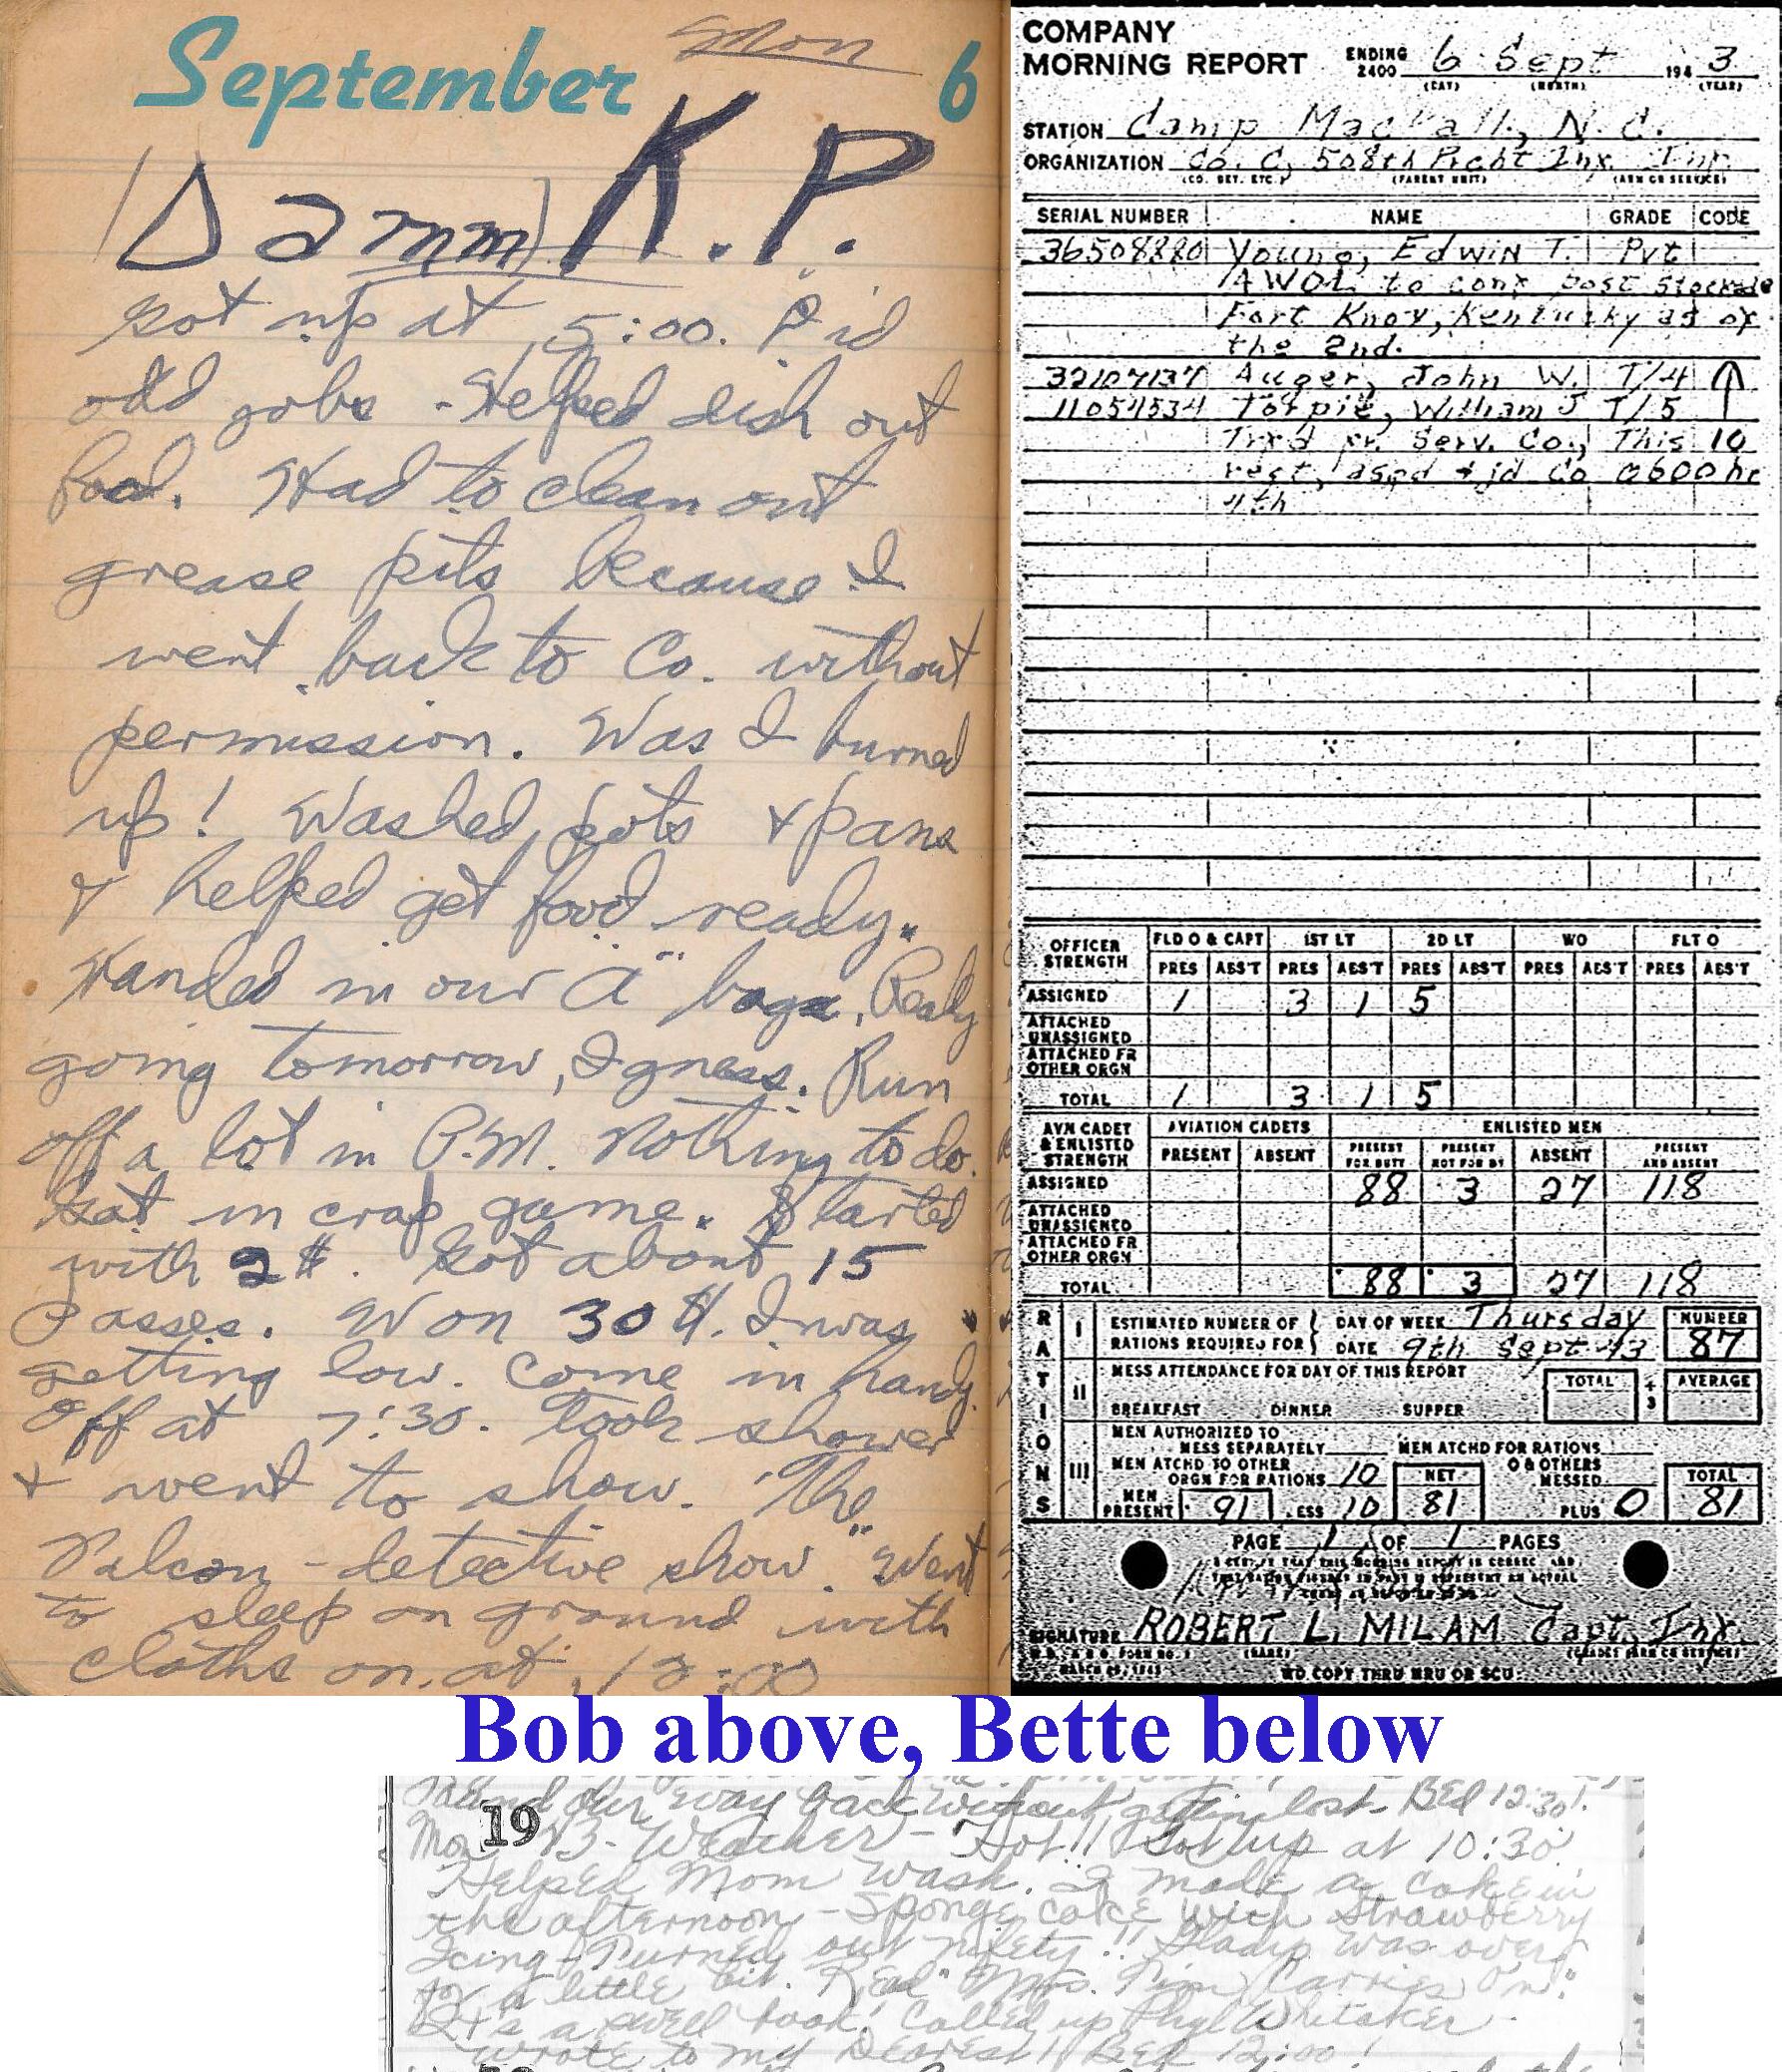 September 6
Mon
(Damm) K.P.
Got up at 5:00. Did
odd jobs - Helped dish out
food. Had to clean out
grease pits because I
went back to Co. without
permission. Was I burned
up! Washed pots & pans
& helped get food ready.
Handed in our "A" bags. Really
going tomorrow, I guess. Run
off a lot in P.M. Nothing to do.
Sat in crap game. Started
with 2$. Got about 15
passes. Won 30$. I was
getting low. Come in handy.
Off at 7:30. Took shower
& went to show. "The
Falcon - detective show." Went
to sleep on ground with
cloths on. at 12:00
COMPANY
MORNING REPORT ENDING 2400 6 Sept 1943
(DAY) (MONTH) (YEAR)
STATION Camp Mackall, N.C.
ORGANIZATION Co. C, 508th Prcht Inf. Inf
(CO. DET. ETC.) (PARENT UNIT) (ARM OR SERVICE)
SERIAL NUMBER NAME GRADE CODE
36508880 Young, Edwin T. Pvt
AWOL to conf post stockade
Fort Knox, Kentucky as of
the 2nd.
32107137 Auger, John W. T/4
11054534 Torpie, William J T/5
Trfd fr. Serv. Co., This 10
regt, asgd & jd Co 0600 hr
4th
OFFICER STRENGTH FLD O & CAPT 1ST LT 2D LT WO FLT O
PRES ABS'T PRES ABS'T PRES ABS'T PRES ABS'T PRES ABS'T
ASSIGNED 1 3 1 5
ATTACHED UNASSIGNED
ATTACHED FR OTHER ORGN
TOTAL 1 3 1 5
AVN CADET & ENLISTED STRENGTH AVIATION CADETS ENLISTED MEN
PRESENT ABSENT PRESENT FOR DUTY PRESENT NOT FOR DY ABSENT PRESENT AND ABSENT
ASSIGNED 88 3 27 118
ATTACHED UNASSIGNED
ATTACHED FR OTHER ORGN
TOTAL 88 3 27 118
RATIONS
I ESTIMATED NUMBER OF RATIONS REQUIRED FOR DAY OF WEEK Thursday NUMBER
DATE 9th Sept 43 87
II MESS ATTENDANCE FOR DAY OF THIS REPORT TOTAL ÷ 3 AVERAGE
BREAKFAST DINNER SUPPER
III MEN AUTHORIZED TO MESS SEPARATELY MEN ATCHD FOR RATIONS
MEN ATCHD TO OTHER ORGN FOR RATIONS 10 NET O & OTHERS MESSED TOTAL
MEN PRESENT 91 LESS 10 81 PLUS 0 81
PAGE 1 OF 1 PAGES
I CERTIFY THAT THIS MORNING REPORT IS CORREC AND
SIGNATURE ROBERT L. MILAM Capt, Inf.
W.D., A.G.O. FORM NO. 1 (NAME) (GRADE) (ARM OR SERVICE)
MARCH 1943 WD COPY THRU MRU OR SCU
Bob above, Bette below
Found our way back without gettin lost - Bed 12:30!
19
Mon 43 - Weather - Hot!! Got up at 10:30
Helped Mom wash. I made a cake in
the afternoon - Sponge cake with Strawberry
Icing - Turned out nifety!! Gladys was over
for a little bit. Read "Mrs. Pim Carries On".
It's a swell book! Called up Phyl Whitaker -
Wrote to my Dearest! Bed 12:00!